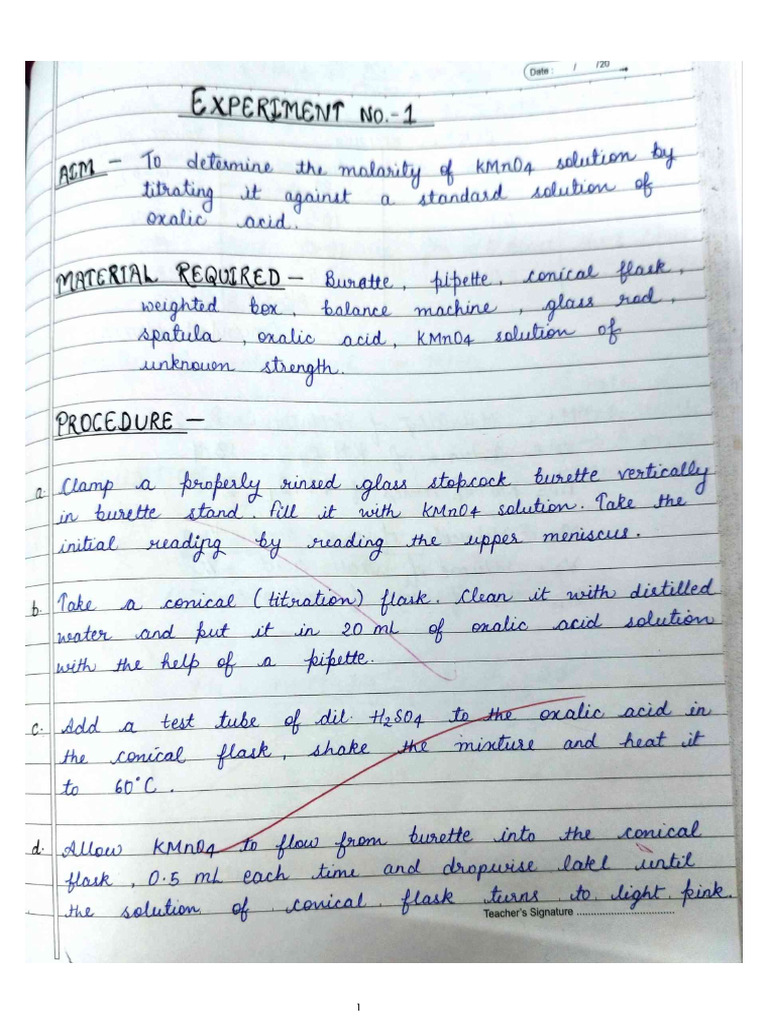 Date : / /20
EXPERIMENT NO.-1
AIM - To determine the molarity of KMnO4 solution by
titrating it against a standard solution of
oxalic acid.
MATERIAL REQUIRED - Buratte, pipette, conical flask,
weighted box, balance machine, glass rod,
spatula, oxalic acid, KMnO4 solution of
unknown strength.
PROCEDURE -
a. Clamp a properly rinsed glass stopcock burette vertically
in burette stand. Fill it with KMnO4 solution. Take the
initial reading by reading the upper meniscus.
b. Take a conical (titration) flask. Clean it with distilled
water and put it in 20 mL of oxalic acid solution
with the help of a pipette.
c. Add a test tube of dil. H2SO4 to the oxalic acid in
the conical flask, shake the mixture and heat it
to 60°C.
d. Allow KMnO4 to flow from burette into the conical
flask, 0.5 mL each time and dropwise until
the solution of conical flask turns to light pink.
Teacher's Signature ................................
1